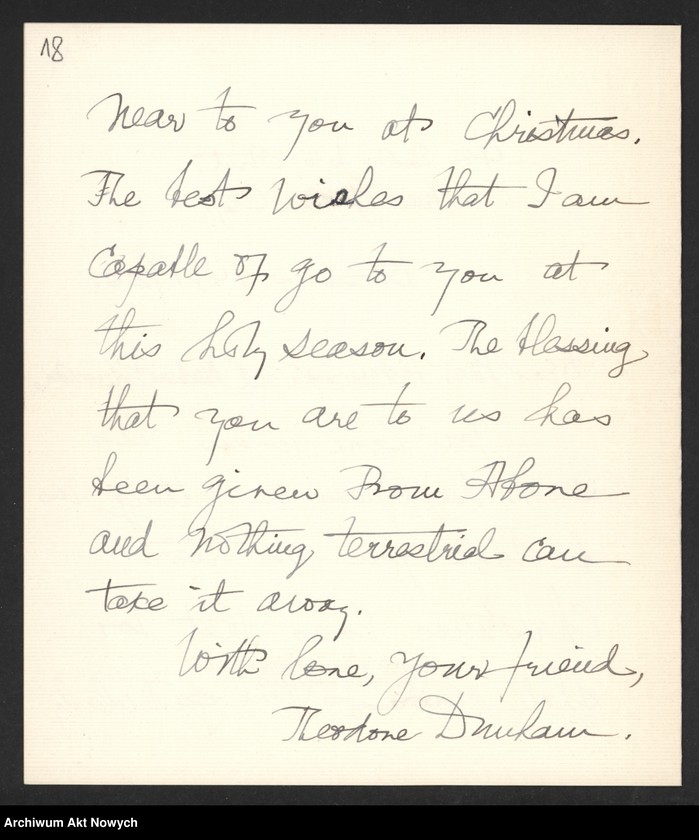 18
Near to you at Christmas.
The best wishes that I am
capable of go to you at
this holy season. The blessing
that you are to us has
been given From Above
and nothing terrestrial can
take it away.
With love, your friend,
Theodore Dunham.
Archiwum Akt Nowych